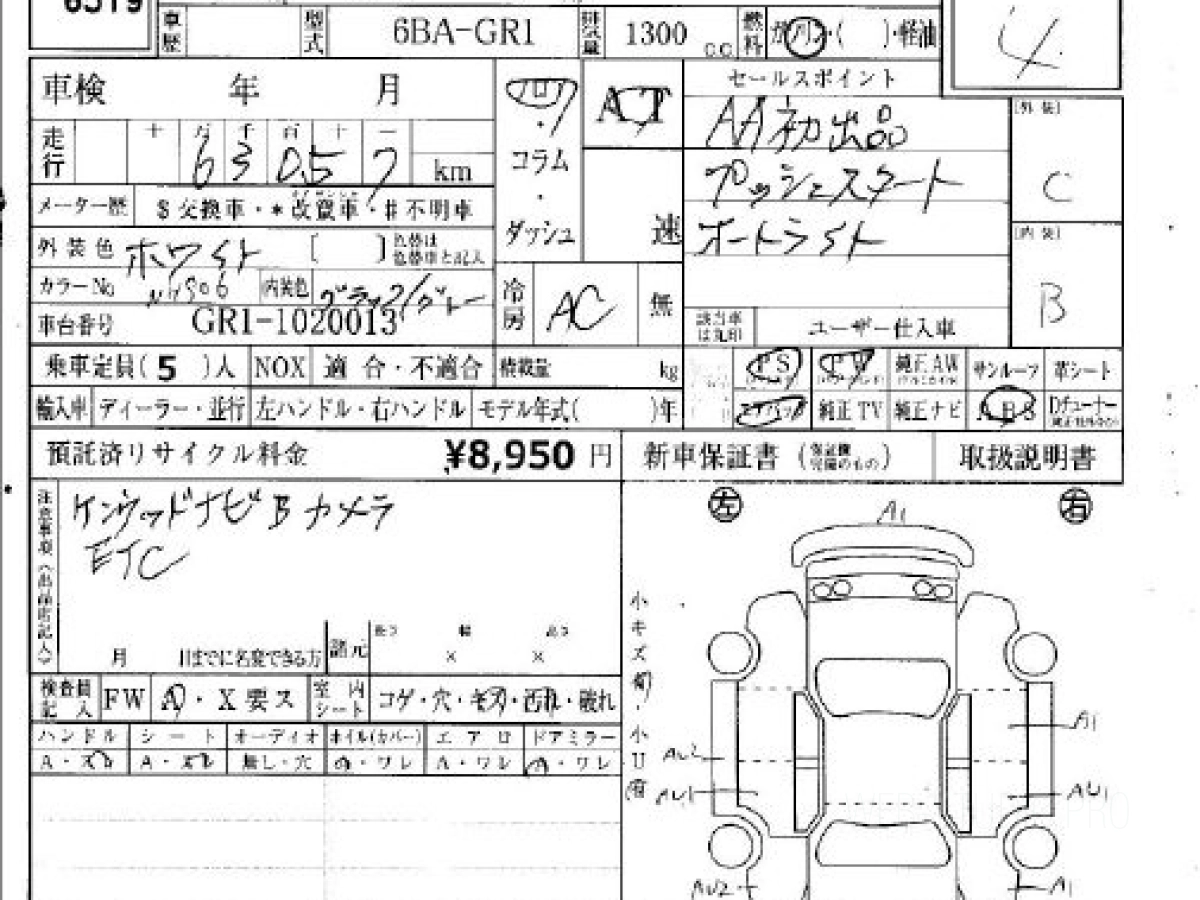 6519
車歴 型式 6BA-GR1 排気量 1300 C.C. 燃料 ガソリン・( )・軽油
4
車検 年 月
AT
セールスポイント
AA初出品
[外装]
C
走行 十 万 千 百 十 一
6 3 0 5 7 km
コラム
プッシュスタート
メーター歴 $交換車・*改竄車・#不明車
ダッシュ 速
オートライト
[内装]
B
外装色 ホワイト [ ] 色替は色替車と記入
カラーNo NH906 内装色 ブラック/グレー
冷房 AC 無
車台番号 GR1-1020013
該当車は丸印 ユーザー仕入車
乗車定員( 5 )人 NOX 適合・不適合 積載量 kg
PS PW 純正AW サンルーフ 革シート
輸入車 ディーラー・並行 左ハンドル・右ハンドル モデル年式( )年
エアバッグ 純正TV 純正ナビ ABS Dチューナー
預託済リサイクル料金 ¥8,950 円
新車保証書 取扱説明書
注意事項(出品店記入)
ケンウッドナビ Bカメラ
ETC
左 A1 右
小キズ有・小U有
月 日までに名変できる方 諸元 長さ 幅 高さ
× ×
検査員記入 FW A・X要ス 室内シート コゲ・穴・キズ・汚れ・破れ
ハンドル シート オーディオ ホイル(カバー) エアロ ドアミラー
A・スレ A・スレ 無し・穴 A・ワレ A・ワレ A・ワレ
AU2 A1
AU1 AU1
AU2 A1